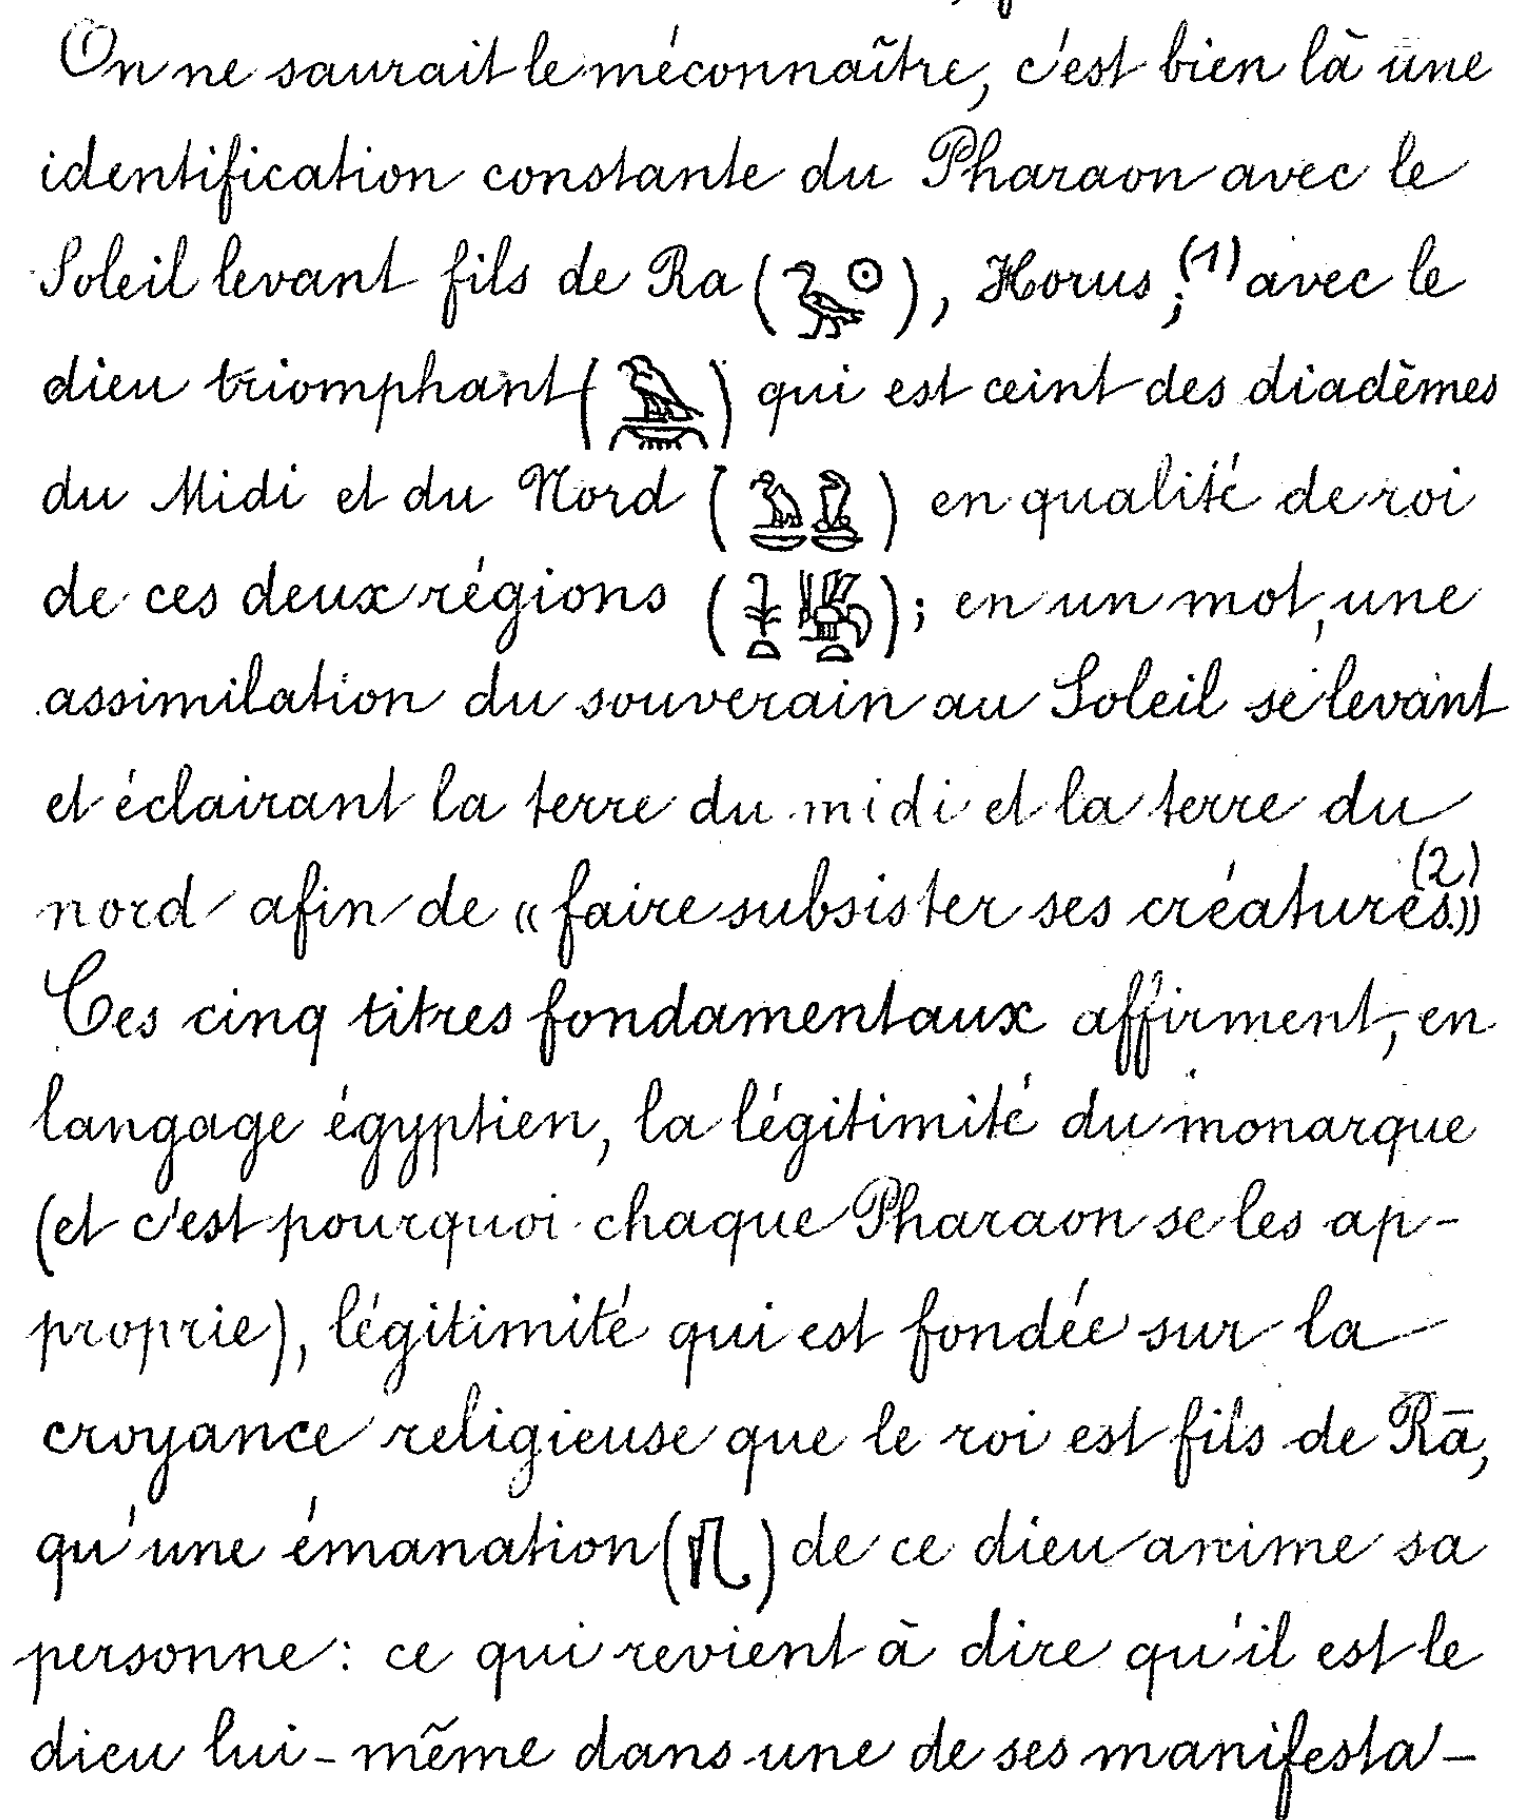 On ne saurait le méconnaître, c'est bien là une
identification constante du Pharaon avec le
Soleil levant fils de Ra (𓅭𓇳), Horus;(1) avec le
dieu triomphant (𓅉) qui est ceint des diadèmes
du Midi et du Nord (𓅒) en qualité de roi
de ces deux régions (𓇓𓏏𓆤𓏏); en un mot, une
assimilation du souverain au Soleil se levant
et éclairant la terre du midi et la terre du
nord afin de « faire subsister ses créatures.(2)»
Ces cinq titres fondamentaux affirment, en
langage égyptien, la légitimité du monarque
(et c'est pourquoi chaque Pharaon se les ap-
proprie), légitimité qui est fondée sur la
croyance religieuse que le roi est fils de Rā,
qu'une émanation () de ce dieu anime sa
personne: ce qui revient à dire qu'il est le
dieu lui-même dans une de ses manifesta-